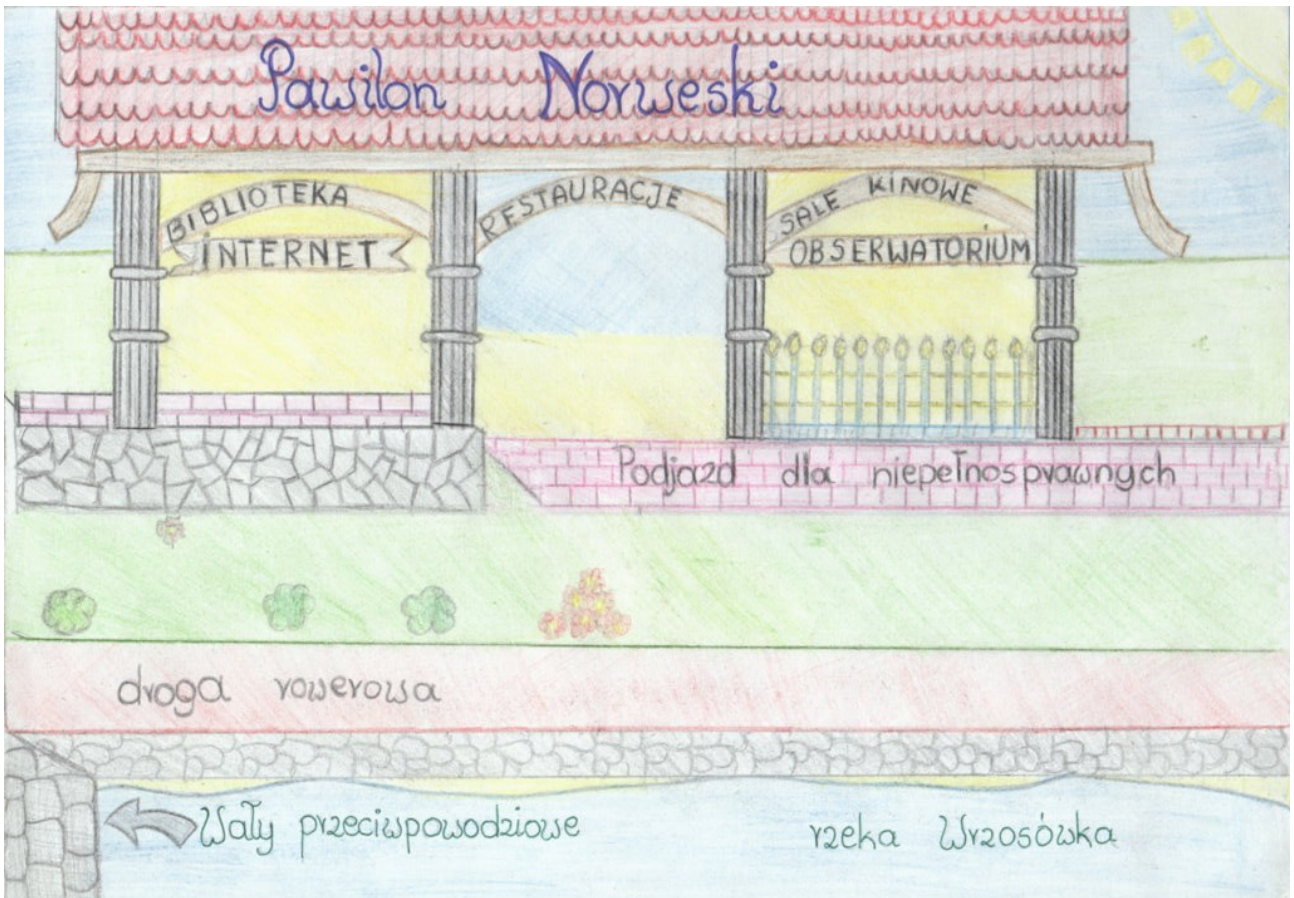 Pawilon Norweski
BIBLIOTEKA
INTERNET
RESTAURACJE
SALE KINOWE
OBSERWATORIUM
Podjazd dla niepełnosprawnych
droga rowerowa
Wały przeciwpowodziowe
rzeka Wrzosówka